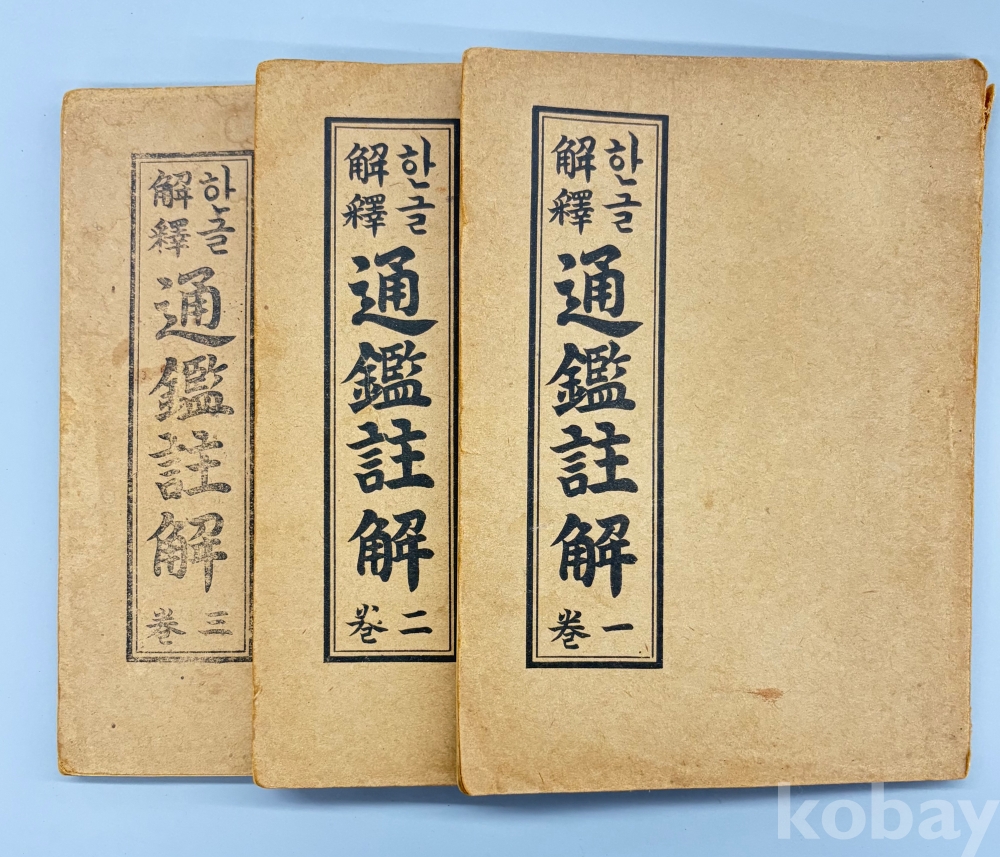 한글
解釋
通鑑註解
卷一
한글
解釋
通鑑註解
卷二
한글
解釋
通鑑註解
卷三
kobay